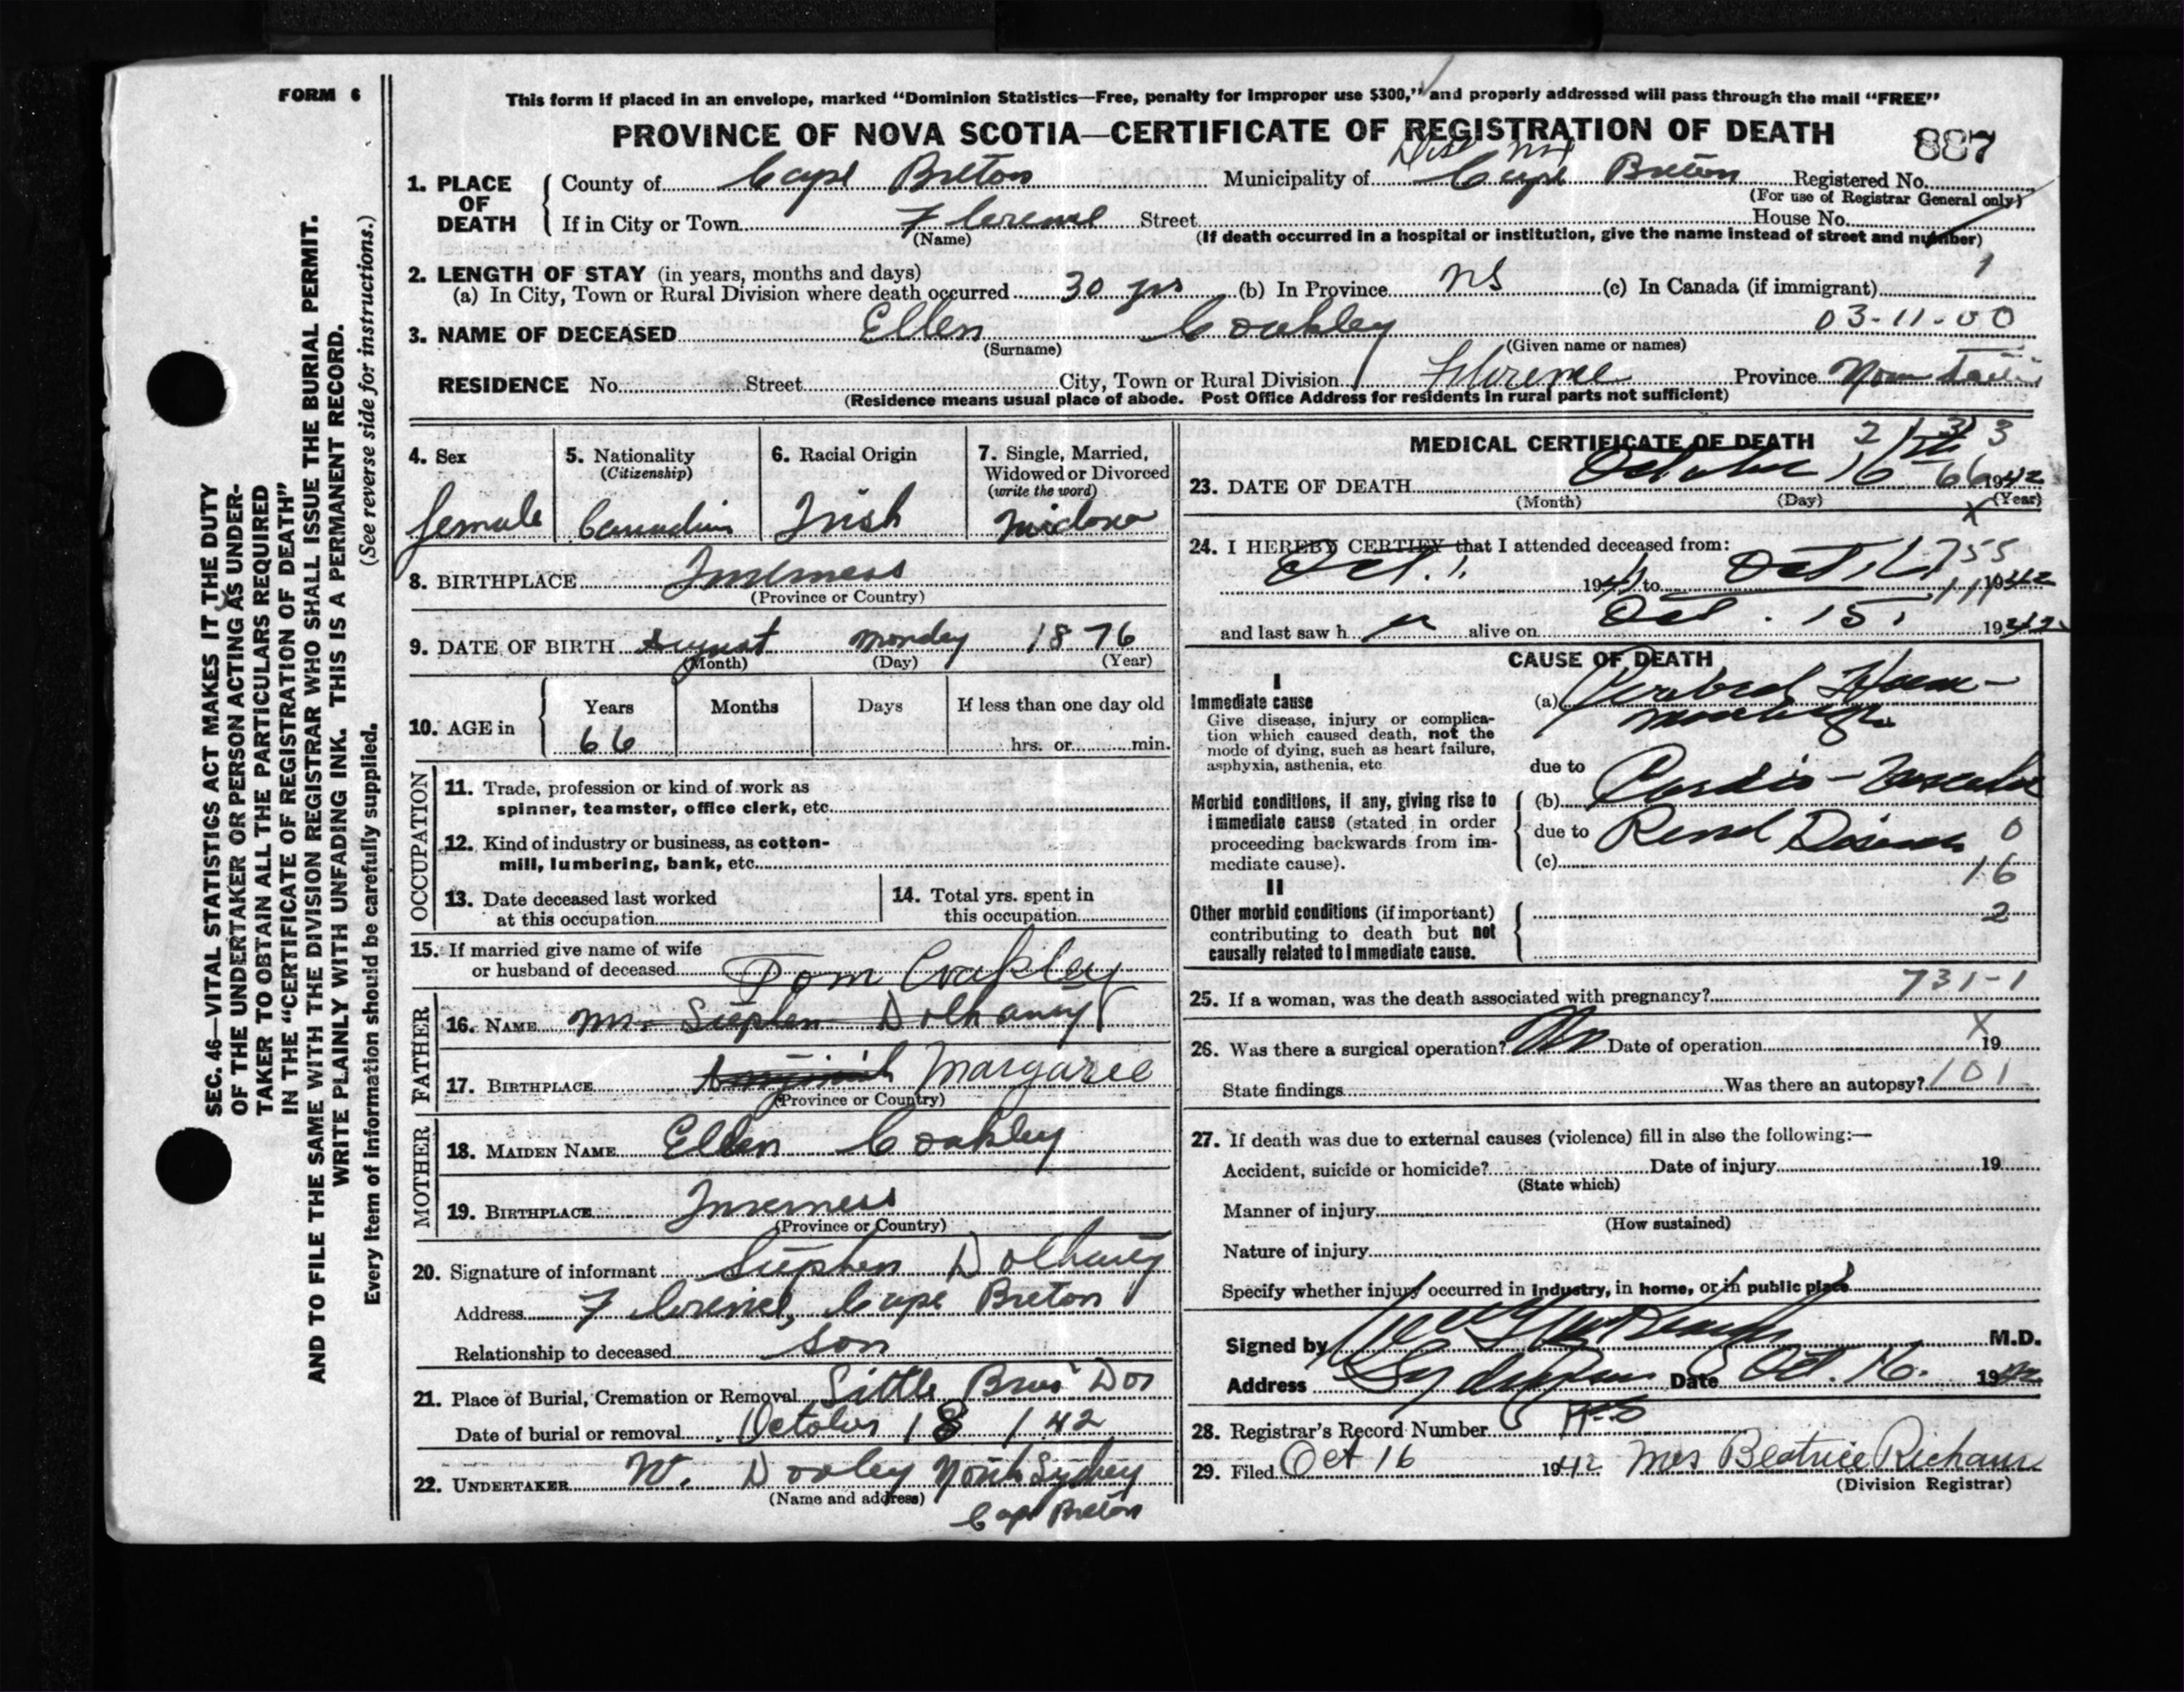 FORM 6
This form if placed in an envelope, marked “Dominion Statistics—Free, penalty for improper use $300,” and properly addressed will pass through the mail “FREE”
PROVINCE OF NOVA SCOTIA—CERTIFICATE OF REGISTRATION OF DEATH
887
1. PLACE OF DEATH
County of Cape Breton Municipality of Cape Breton Registered No.
(For use of Registrar General only)
If in City or Town Florence Street House No.
(Name) (If death occurred in a hospital or institution, give the name instead of street and number)
2. LENGTH OF STAY (in years, months and days) 1
(a) In City, Town or Rural Division where death occurred 30 yrs (b) In Province NS (c) In Canada (if immigrant)
3. NAME OF DECEASED Ellen Coakley 03-11-00
(Surname) (Given name or names)
RESIDENCE No. Street City, Town or Rural Division Florence Province Nova Scotia
(Residence means usual place of abode. Post Office Address for residents in rural parts not sufficient)
4. Sex
female
5. Nationality
(Citizenship)
Canadian
6. Racial Origin
Irish
7. Single, Married,
Widowed or Divorced
(write the word)
Widow
8. BIRTHPLACE Inverness
(Province or Country)
9. DATE OF BIRTH August Monday 1876
(Month) (Day) (Year)
10. AGE in
Years Months Days If less than one day old
66 hrs. or min.
OCCUPATION
11. Trade, profession or kind of work as
spinner, teamster, office clerk, etc.
12. Kind of industry or business, as cotton-
mill, lumbering, bank, etc.
13. Date deceased last worked
at this occupation
14. Total yrs. spent in
this occupation
15. If married give name of wife
or husband of deceased Tom Coakley
FATHER
16. NAME Mr. Stephen Dolhanty
17. BIRTHPLACE Margaree
(Province or Country)
MOTHER
18. MAIDEN NAME Ellen Coakley
19. BIRTHPLACE Inverness
(Province or Country)
20. Signature of informant Stephen Dolhanty
Address Florence, Cape Breton
Relationship to deceased son
21. Place of Burial, Cremation or Removal Little Bras Dor
Date of burial or removal October 18 / 42
22. UNDERTAKER W. Dooley North Sydney
(Name and address)
Cape Breton
MEDICAL CERTIFICATE OF DEATH
23. DATE OF DEATH October 16 1942
(Month) (Day) (Year)
66
24. I HEREBY CERTIFY that I attended deceased from:
Oct. 1. 194 to Oct 1942
and last saw her alive on Oct. 15. 1942
CAUSE OF DEATH
I
Immediate cause
Give disease, injury or complica-
tion which caused death, not the
mode of dying, such as heart failure,
asphyxia, asthenia, etc
(a) Cerebral Haem-
orrhage
due to
Morbid conditions, if any, giving rise to
immediate cause (stated in order
proceeding backwards from im-
mediate cause).
(b) Cardio-Vascular
due to Renal Disease 0
(c)
16
II
Other morbid conditions (if important)
contributing to death but not
causally related to immediate cause.
2
25. If a woman, was the death associated with pregnancy? 731-1
26. Was there a surgical operation? No Date of operation 19
State findings Was there an autopsy? 101
27. If death was due to external causes (violence) fill in also the following:—
Accident, suicide or homicide? Date of injury 19
(State which)
Manner of injury
(How sustained)
Nature of injury
Specify whether injury occurred in industry, in home, or in public place
Signed by M.D.
Address Date Oct. 16. 1942
28. Registrar's Record Number
29. Filed Oct 16 1942 Mrs Beatrice Richards
(Division Registrar)
SEC. 46—VITAL STATISTICS ACT MAKES IT THE DUTY
OF THE UNDERTAKER OR PERSON ACTING AS UNDER-
TAKER TO OBTAIN ALL THE PARTICULARS REQUIRED
IN THE “CERTIFICATE OF REGISTRATION OF DEATH”
AND TO FILE THE SAME WITH THE DIVISION REGISTRAR WHO SHALL ISSUE THE BURIAL PERMIT.
WRITE PLAINLY WITH UNFADING INK. THIS IS A PERMANENT RECORD.
Every item of information should be carefully supplied. (See reverse side for instructions.)